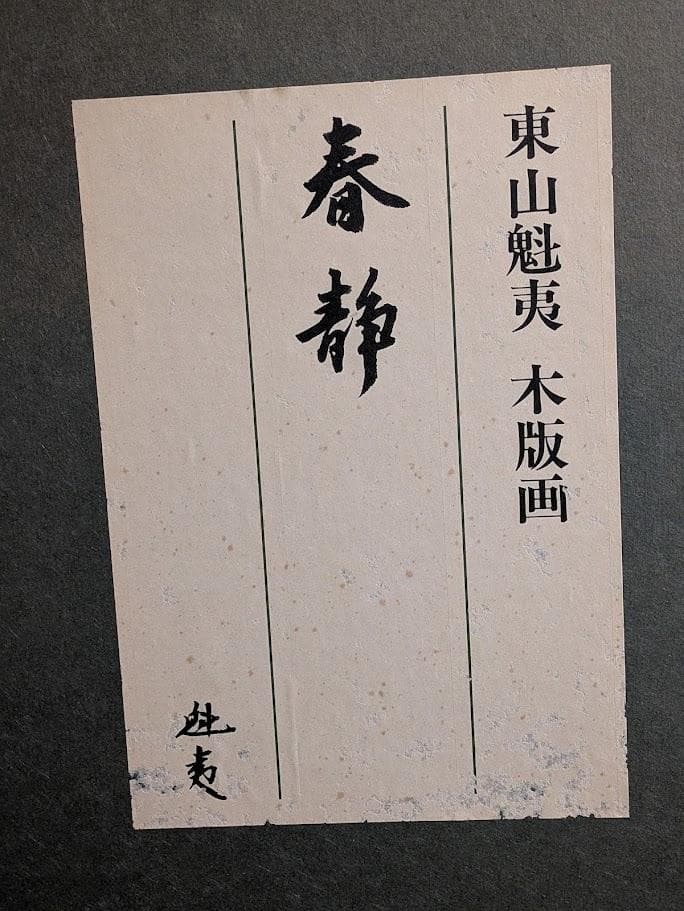 東山魁夷 木版画
春静
魁夷